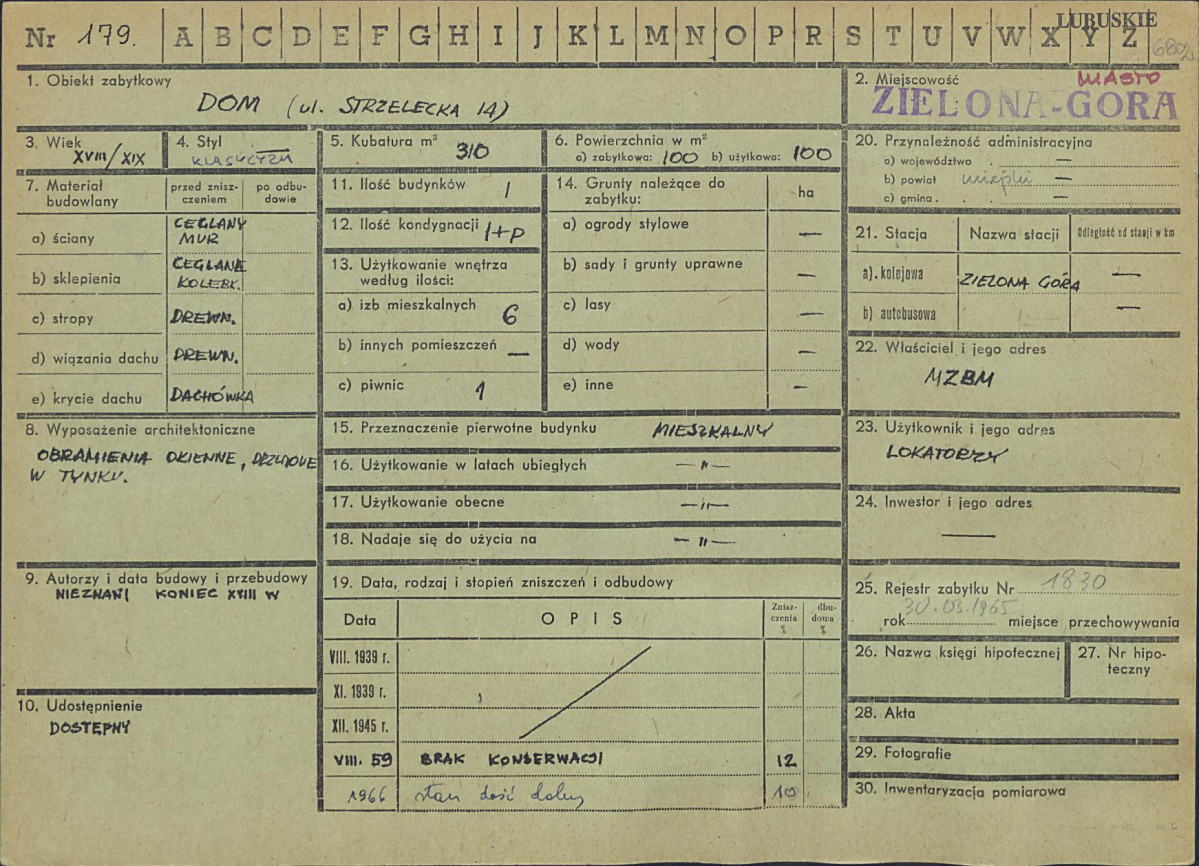 LUBUSKIE
Nr 179. A B C D E F G H I J K L M N O P R S T U V W X Y Z
1. Obiekt zabytkowy
DOM (ul. STRZELECKA 14)
2. Miejscowość
MIASTO
ZIELONA-GORA
3. Wiek
XVIII/XIX
4. Styl
KLASYCYZM
5. Kubatura m³
310
6. Powierzchnia w m²
a) zabytkowa: 100 b) użytkowa: 100
7. Materiał budowlany
przed znisz-
czeniem
po odbu-
dowie
a) ściany
CEGLANY
MUR
b) sklepienia
CEGLANE
KOLEBK.
c) stropy DREWN.
d) wiązania dachu DREWN.
e) krycie dachu DACHÓWKA
8. Wyposażenie architektoniczne
OBRAMIENIA OKIENNE, DRZWIOWE
W TYNKU.
9. Autorzy i data budowy i przebudowy
NIEZNANI KONIEC XVIII W
10. Udostępnienie
DOSTĘPNY
11. Ilość budynków 1
12. Ilość kondygnacji 1+P
13. Użytkowanie wnętrza
według ilości:
a) izb mieszkalnych 6
b) innych pomieszczeń —
c) piwnic 1
14. Grunty należące do
zabytku:
ha
a) ogrody stylowe —
b) sady i grunty uprawne —
c) lasy —
d) wody —
e) inne —
15. Przeznaczenie pierwotne budynku MIESZKALNY
16. Użytkowanie w latach ubiegłych —„—
17. Użytkowanie obecne —„—
18. Nadaje się do użycia na —„—
19. Data, rodzaj i stopień zniszczeń i odbudowy
Data OPIS
Znisz-
czenia
%
dbu-
dowa
%
VIII. 1939 r.
XI. 1939 r.
XII. 1945 r.
VIII. 59 BRAK KONSERWACJI 12
1966 stan dość dobry 10
20. Przynależność administracyjna
a) województwo —
b) powiat miejski —
c) gmina —
21. Stacja Nazwa stacji Odległość od stacji w km
a). kolejowa ZIELONA GÓRA —
b) autobusowa —
22. Właściciel i jego adres
MZBM
23. Użytkownik i jego adres
LOKATORZY
24. Inwestor i jego adres
—
25. Rejestr zabytku Nr 1830
30.03.1965
rok miejsce przechowywania
26. Nazwa księgi hipotecznej
27. Nr hipo-
teczny
28. Akta
29. Fotografie
30. Inwentaryzacja pomiarowa